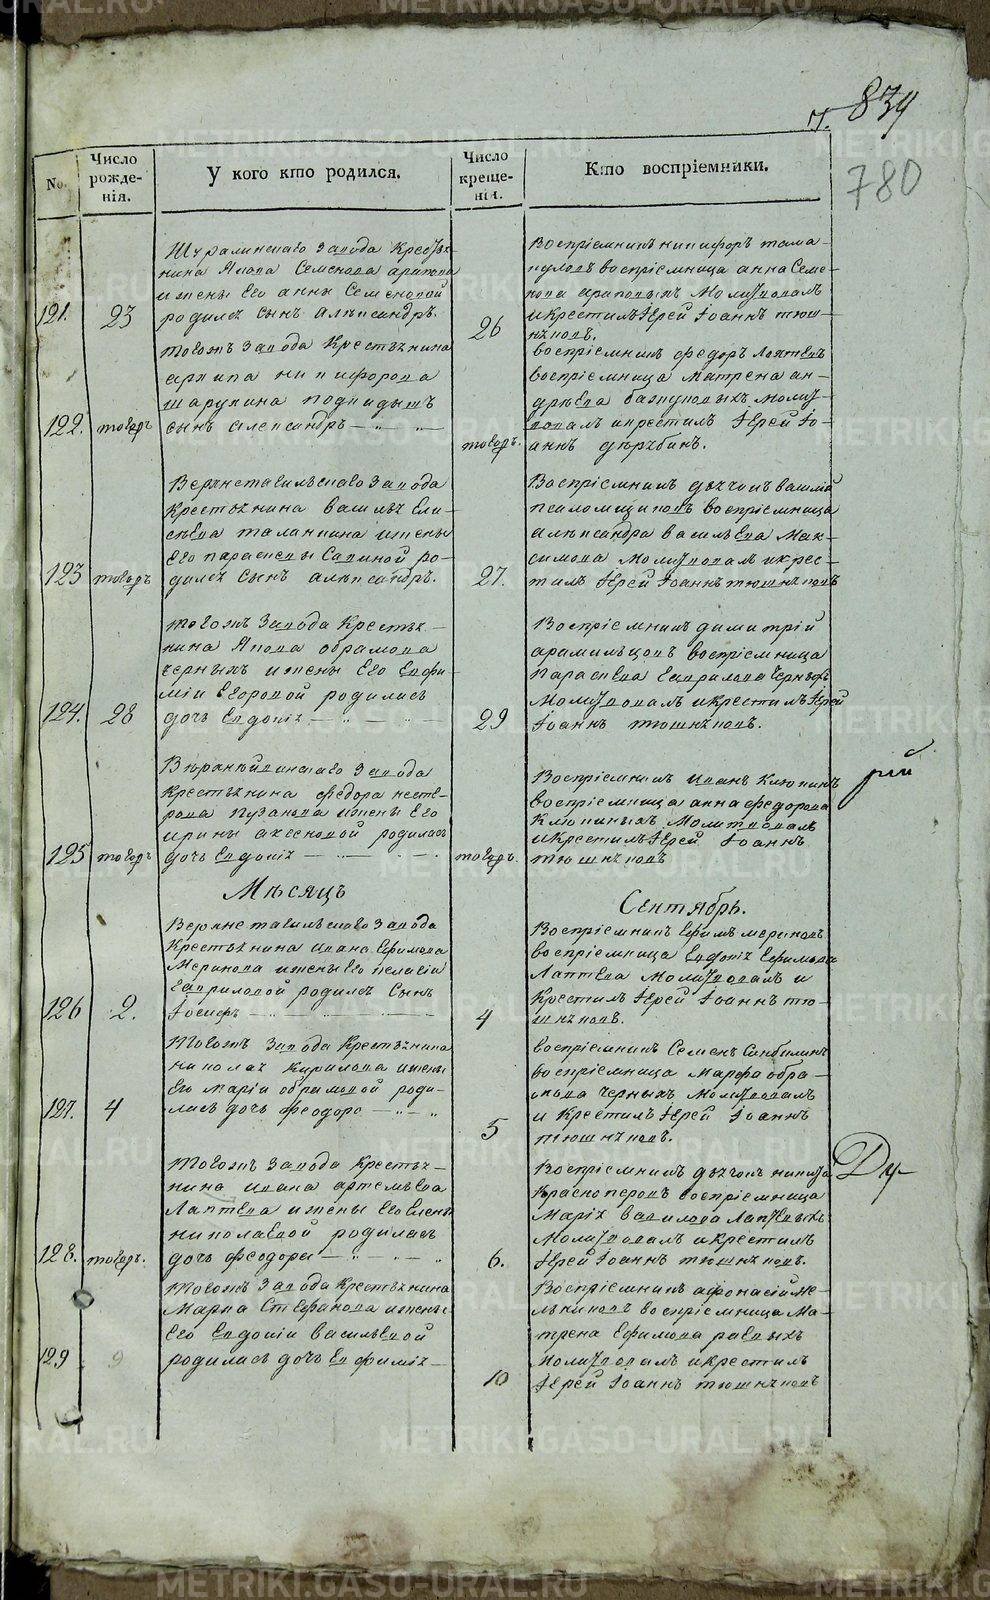 ч. 839
780
No.
Число рожде-нія.
У кого кто родился.
Число креще-нія.
Кто воспріемники.
Шуралинскаго Завода Крестья-
нина Якова Семенова арапова
и жены Его анны Семеновой
121. 23 родился сынъ алѣксандръ.
26
Воспріемникъ никифоръ тама-
куловъ воспріемница анна Семе-
нова араповыхъ Молитвовалъ
и крестилъ Іерей Іоаннъ тюш-
няковъ.
тогожъ Завода Крестьянина
архипа никифорова
шарукина подкидышъ
122. тогожъ сынъ александръ
тогожъ.
воспріемникъ федоръ Лаптевъ
воспріемница Матрена ан-
дрѣева бакуновыхъ молит-
вовалъ и крестилъ Іерей Іо-
аннъ
Верхнетагильскаго Завода
Крестьянина василья Ели-
сѣева таланкина и жены
Его параскевы Савиной ро-
123 тогожъ дился сынъ алѣксандръ.
27.
Воспріемникъ дьячокъ василій
псаломщиковъ воспріемница
алѣксандра васильева Мак-
симова Молитвовалъ и крес-
тилъ Іерей Іоаннъ тюшняковъ
тогожъ Завода Крестья-
нина Якова абрамова
черныхъ и жены Его Евфи-
міи Егоровой родилась
124. 28 дочь Евдокія
29
Воспріемникъ димитрій
арамильцовъ воспріемница
параскева гаврилова черныхъ
молитвовалъ и крестилъ Іерей
Іоаннъ тюшняковъ.
Верхнѣйвинскаго Завода
Крестьянина федора несте-
рова пузанова и жены Его
ирины аксеновой родилась
125 тогожъ дочь Евдокія
тогожъ.
Воспріемникъ иванъ Клюкинъ
воспріемница анна федорова
Клюкиныхъ Молитвовалъ
и Крестилъ Іерей Іоаннъ
тюшняковъ
Мѣсяцъ
Сентябрь.
Верхнетагильскаго Завода
Крестьянина ивана Ефимова
Меркова и жены Его пелагіи
гавриловой родился Сынъ
126 2. Іосифъ
4
Воспріемникъ Ефимъ мерковъ
воспріемница Евдокія Ефимова
Лаптева молитвовалъ и
Крестилъ Іерей Іоаннъ тю-
шняковъ.
Тогожъ Завода Крестьянина
николая Кирилова и жены
Его Маріи абрамовой роди-
127. 4 лась дочь феодора
5
воспріемникъ Семенъ
воспріемница Марфа абра-
мова черныхъ молитвовалъ
и Крестилъ Іерей Іоаннъ
тюшняковъ.
Тогожъ Завода Крестья-
нина ивана артемьева
Лаптева и жены Его Елены
николаевой родилась
128. тогожъ. дочь феодора
6.
Воспріемникъ дьячокъ никита
Красноперовъ воспріемница
Марія вавилова Лаптевыхъ
Молитвовалъ и крестилъ
Іерей Іоаннъ тюшняковъ.
Тогожъ Завода Крестьянина
Марка Стефанова и жены
Его Евдокіи васильевой
129 9 родилась дочь Евфимія
10
Воспріемникъ афонасій ме-
льниковъ воспріемница Ма-
трена Ефимова раевыхъ
молитвовалъ и крестилъ
Іерей Іоаннъ тюшняковъ
рій
Ду-
METRIKI.GASO-URAL.RU